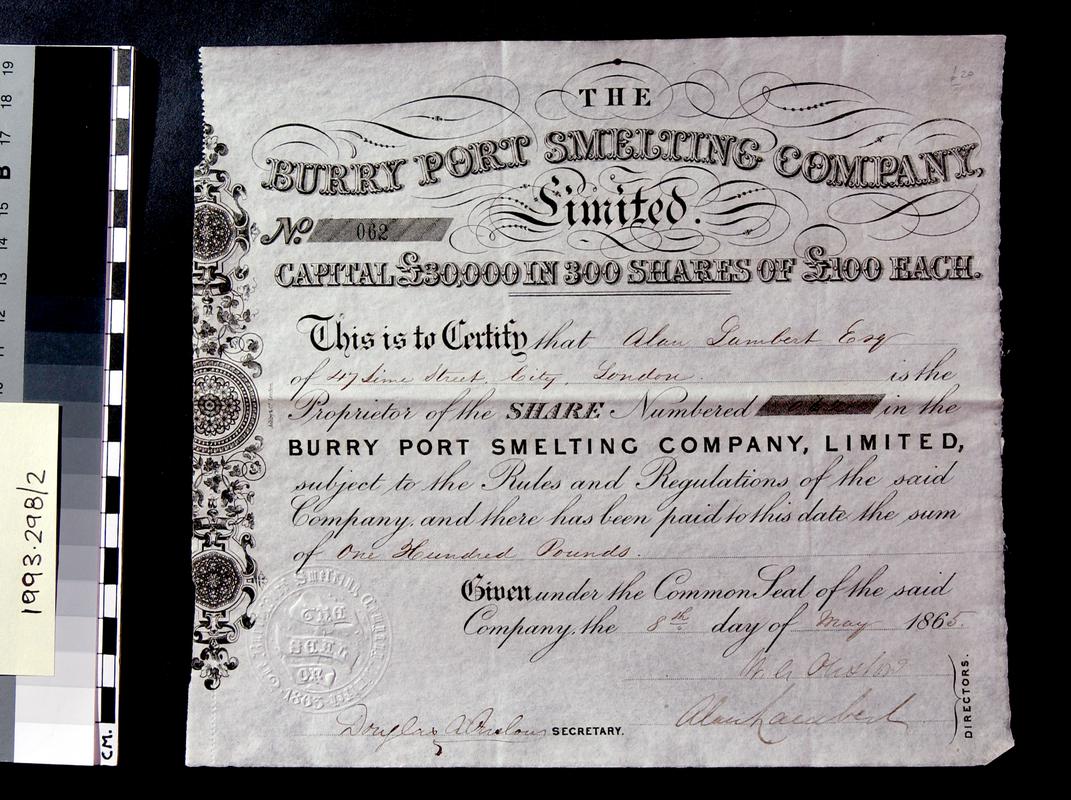 THE
BURRY PORT SMELTING COMPANY,
Limited.
No 062
CAPITAL £30,000 IN 300 SHARES OF £100 EACH.
This is to Certify that Alan Lambert Esq
of 47 Lime Street, City, London. is the
Proprietor of the SHARE Numbered in the
BURRY PORT SMELTING COMPANY, LIMITED,
subject to the Rules and Regulations of the said
Company, and there has been paid to this date the sum
of One Hundred Pounds.
Given under the Common Seal of the said
Company, the 8th day of May 1865.
Alan Lambert
DIRECTORS.
Douglas SECRETARY.
THE
SEAL
OF
1863
1993.298/2
19
18
17
B
15
14
13
12
11
CM.